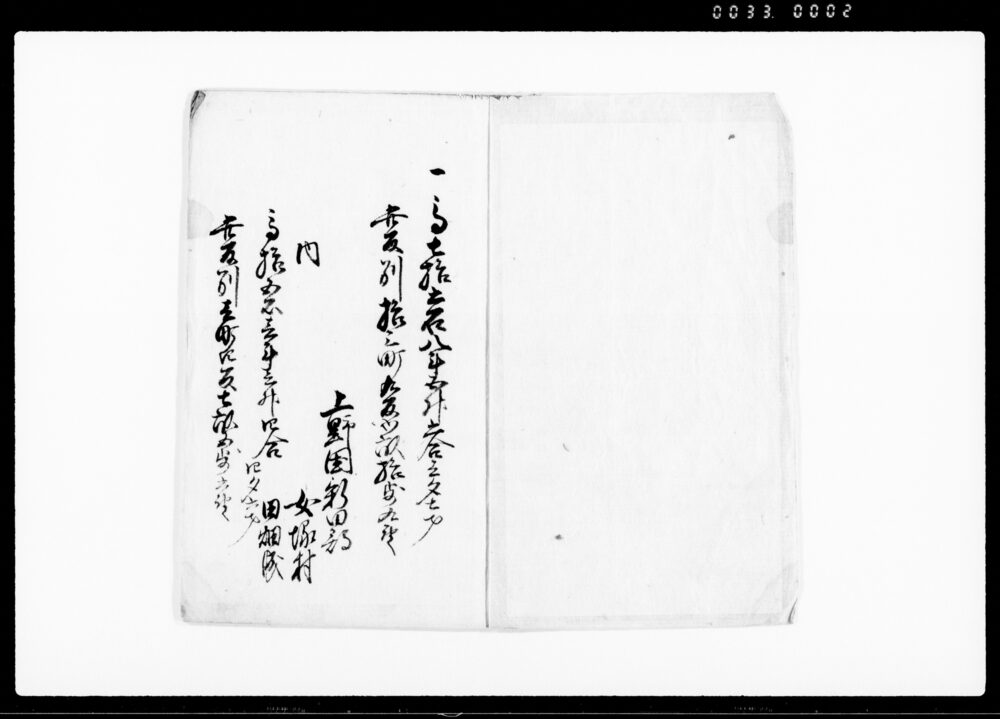 0033. 0002
一高七拾六石八斗五升六合三夕七才
此反別拾三町九反八畝拾歩九厘
上野国新田郡
女塚村
内
高拾五石壱斗三升四合四夕六才
田畑成
此反別壱町四反七畝